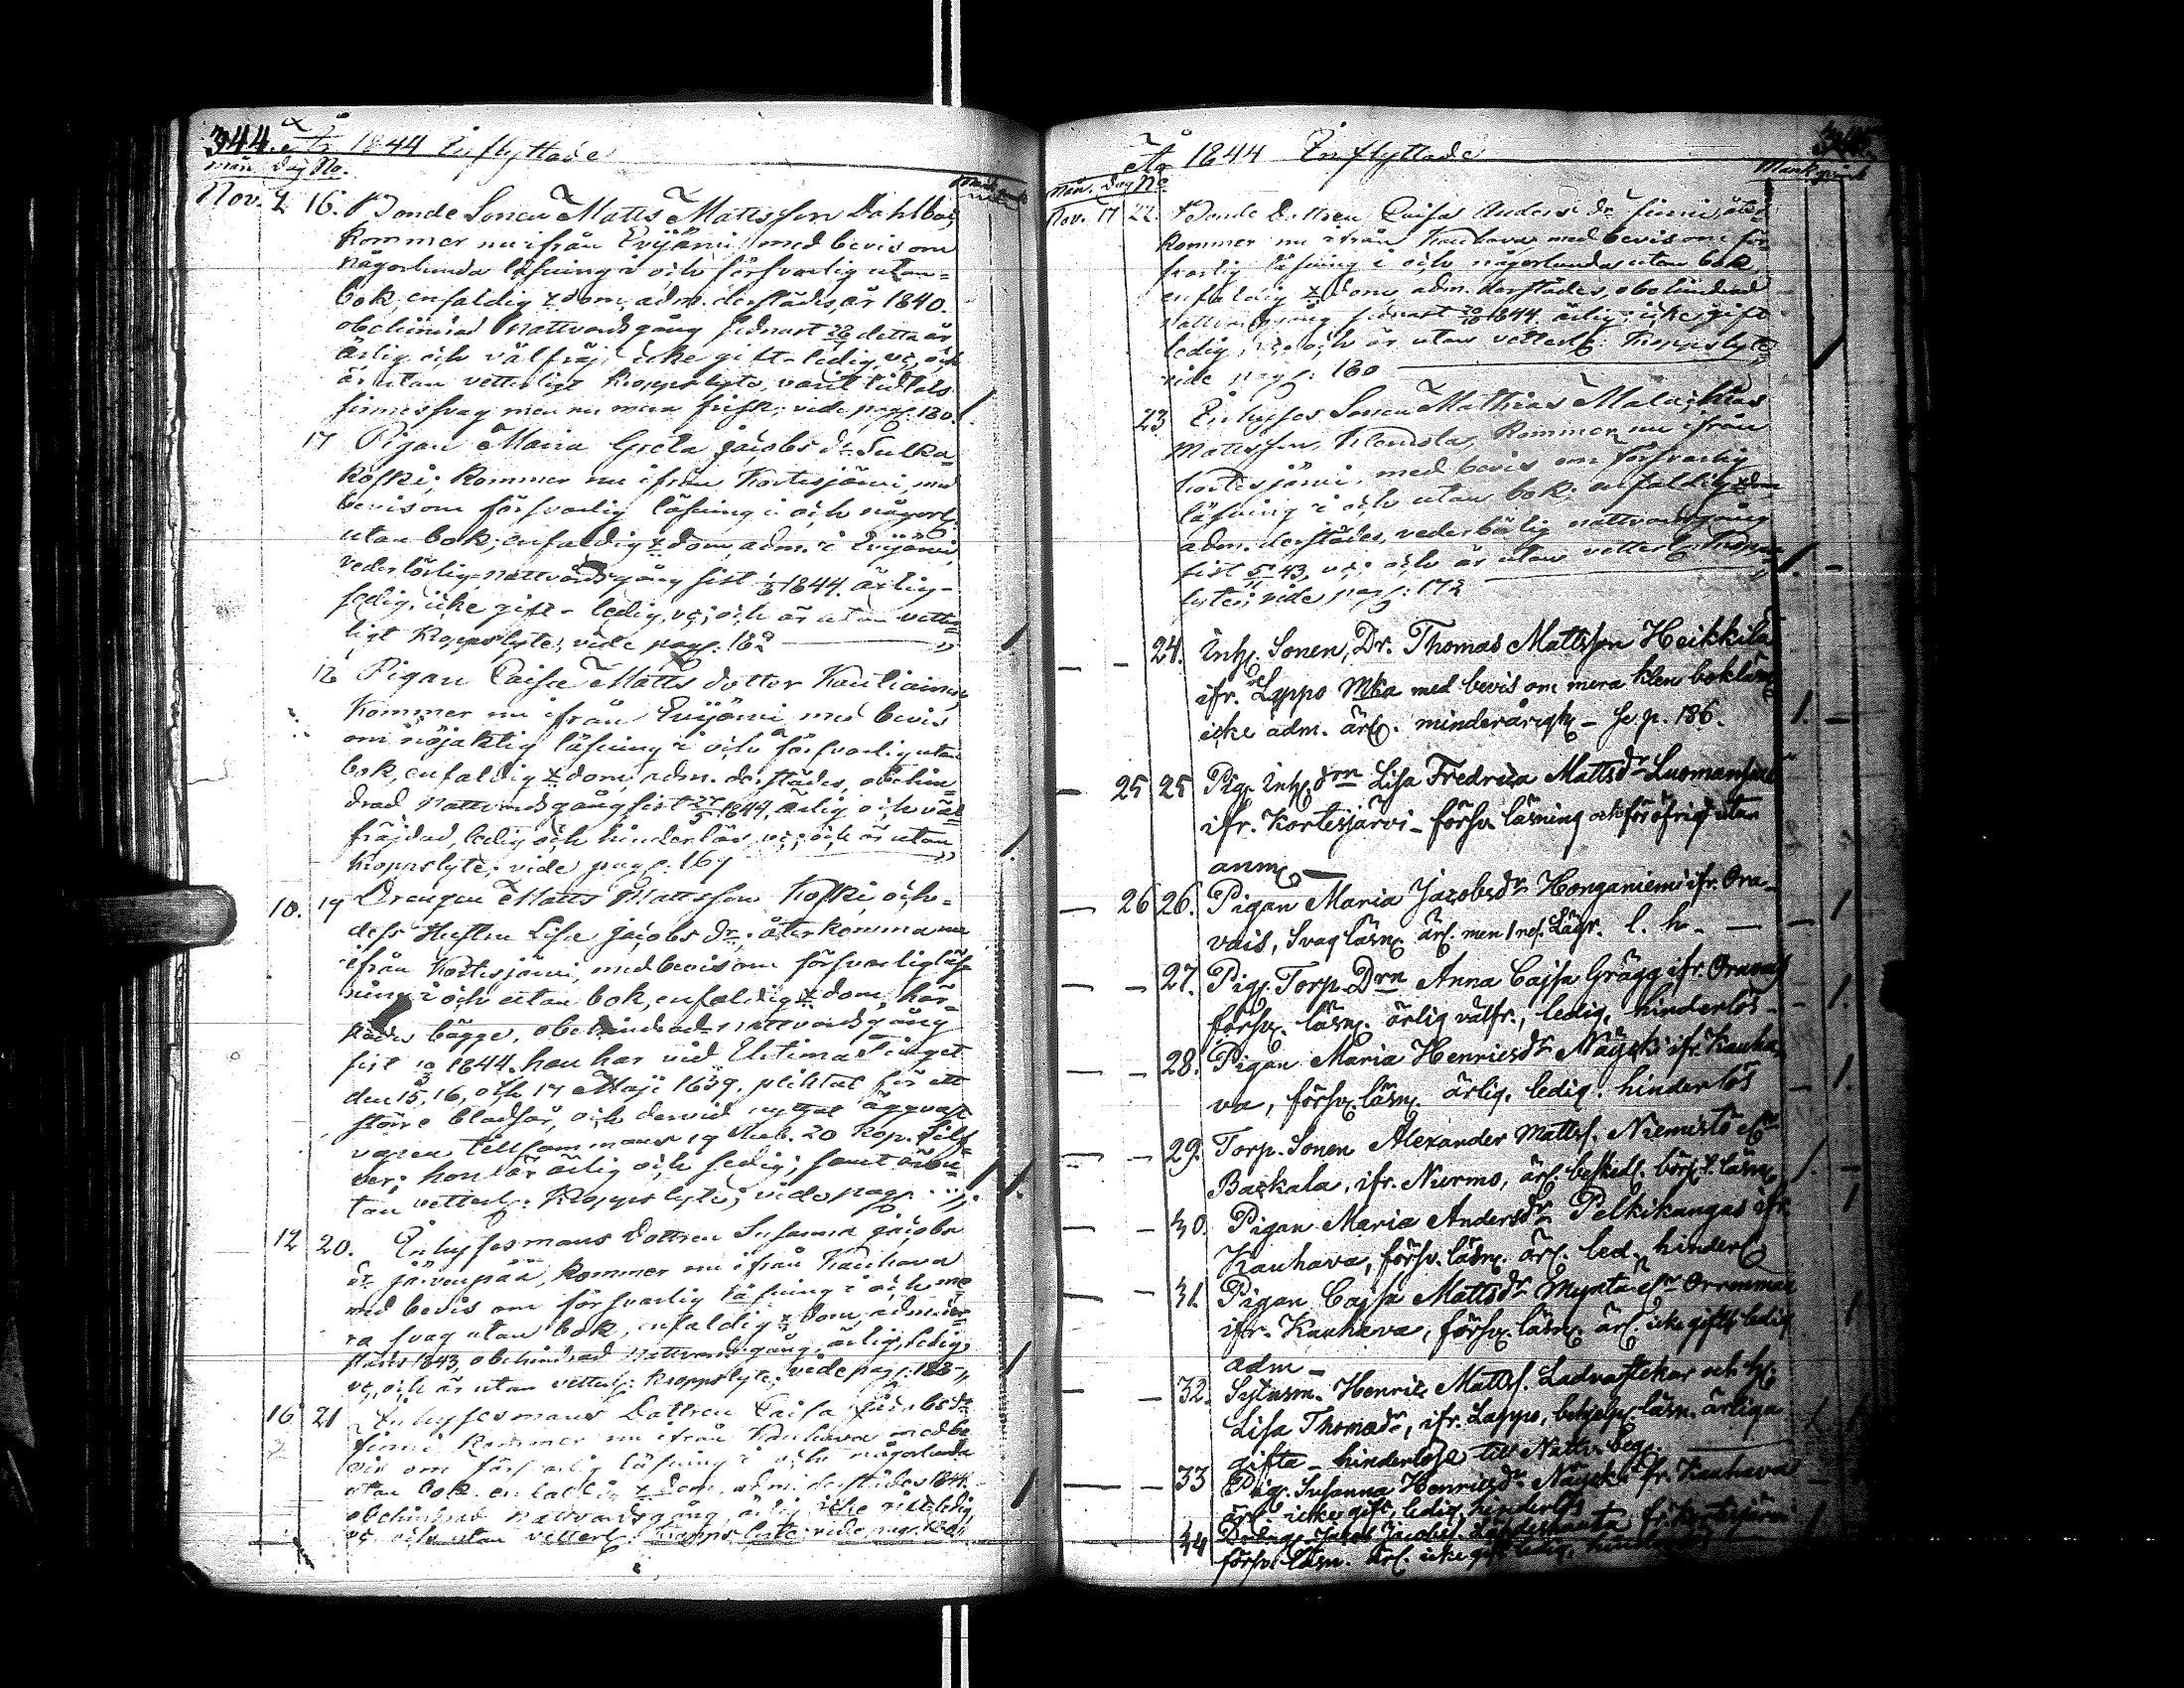 344. År 1844 Inflyttade
Mån. Dag No.
Nov. 2 16. Bonde Sonen Matts Mattsson Dahlbac,
kommer nu ifrån Evijärvi med bevis om
någorlunda läsning i och försvarlig utan-
bok, enfaldig xdom, adm. derstädes, år 1840.
obehindrad Nattvardsgång sednast detta år
ärlig och välfräj. icke gift - ledig, vc, och
är utan vetterligt kroppslyte, varit tidtals
sinnessvag men nu mera frisk, vide pag. 180.
17 Pigan Maria Greta Jacobs dr Sulka-
koski, kommer nu ifrån Kortesjärvi, med
bevis om försvarlig läsning i och någorl.
utan bok, enfaldig xdom, adm. i Evijärvi,
vederbörlig Nattvardsgång sist 1844. ärlig -
sedig, icke gift - ledig, vc, och är utan vetter-
ligt kroppslyte, vide pag. 182
18 Pigan Caisa Matts dotter Kautiainen,
kommer nu ifrån Evijärvi med bevis
om nöjaktig läsning i och försvarlig utan
bok, enfaldig xdom, adm. derstädes, obehin-
drad Nattvardsgång sist 1844, ärlig och väl-
fräjdad, ledig och hinderlös, vc, och är utan
kroppslyte, vide pag. 169
10. 19 Drengen Matts Mattsson Koski och
dess Hustru Lisa Jacobs dr, återkomma nu
ifrån Kortesjärvi, med bevis om försvarlig läs-
ning i och utan bok, enfaldig xdom, här-
städes bägge, obehindrad nattvardsgång
sist 1844. han har vid Ting et
den 15, 16, och 17 Maji 1839. pliktat för ett
större blodsår, och dervid
tillsammans 19 Rub. 20 kop. Silf-
ver; hon är ärlig och sedig; samt äro u-
tan vetterl: kroppslyte; vide pag.
12 20. Inhysesmans Dottren Susanna Jacobs
dr Järvenpää, kommer nu ifrån Kauhava
med bevis om försvarlig läsning i och me-
ra svag utan bok, enfaldig xdom, adm. der-
städes 1843, obehindrad Nattvardsgång, ärlig, ledig,
vc, och är utan vetterl: kroppslyte, vide pag. 183
16 21 Inhysesmans Dottren Caisa Jacobs dr
Finni kommer nu ifrån Kauhava med be-
vis om försvarlig läsning i och någorlunda
utan bok, enfaldig xdom, adm. derstädes 1844.
obehindrad Nattvardsgång, ärlig, icke gift, ledig,
vc och utan vetterl. kroppslyte vide pag.
År 1844 Inflyttade
Mån. Dag No
Nov. 17 22. Bonde Dottren Caisa Anders dr Finni, åter-
kommer nu ifrån Kauhava med bevis om för-
svarlig läsning i och någorlunda utan bok,
enfaldig xdom, adm. derstädes, obehindrad
Nattvardsgång sednast 1844. ärlig, icke gift
ledig, vc och är utan vetterl: kroppslyte,
vide pag: 180
23 Inhyses Sonen Mathias Malachias
Mattsson, kommer nu ifrån
Kortesjärvi, med bevis om försvarlig
läsning i och utan bok, enfaldig xdom
adm. derstädes, vederbörlig nattvardsgång
sist 43, vc, och är utan vetterl. kropps-
lyte, vide pag: 172
24. Inh. Sonen, Dr. Thomas Mattsson Heikkilä
ifr. Lappo Mka med bevis om mera klen boklärd
icke adm. ärl. minderårigh - Se p. 186.
25 25 Pig. Inh. drn Lisa Fredrica Mattsdr Luomansuu
ifr. Kortesjärvi - försv. läsning och för öfrigt utan
anm.
26 26. Pigan Maria Jacobsdr Honganiemi ifr. Ora-
vais, Svag läsn. ärl. men 1 res. Lägr. l. h.
27. Pig. Torp. Drn Anna Cajsa Grägg ifr. Oravais
försv. läsn. ärlig välfr., ledig, hinderlös -
28. Pigan Maria Henricsdr Näÿski ifr. Kauha-
va, försv. läsn. ärlig. ledig. hinderlös
29. Torp. Sonen Alexander Matts. Niemistö
Backala, ifr. Nurmo, ärl. beskedl. börj. läsn.
30. Pigan Maria Andersdr Pelkikangas ifr.
Kauhava, försv. läsn. ärl. led. hinderl.
31 Pigan Cajsa Mattsdr Mynta Orrenmaa
ifr. Kauhava, försv. läsn. ärl. icke gift ledig
adm -
32. Sytnsm. Henric Matts. och h.
Lisa Thomædr, ifr. Lappo, behjelpl. läsn. ärliga
gifta - hinderlöse till Nattv. beg.
33 Pig. Susanna Henricsdr Näÿski fr. Kauhava
ärl. icke gift, ledig, hinderlös
34 Dreng. Jakob Jacobs. fr. Kortesjärvi
försv. läsn. ärl. icke gift ledig,